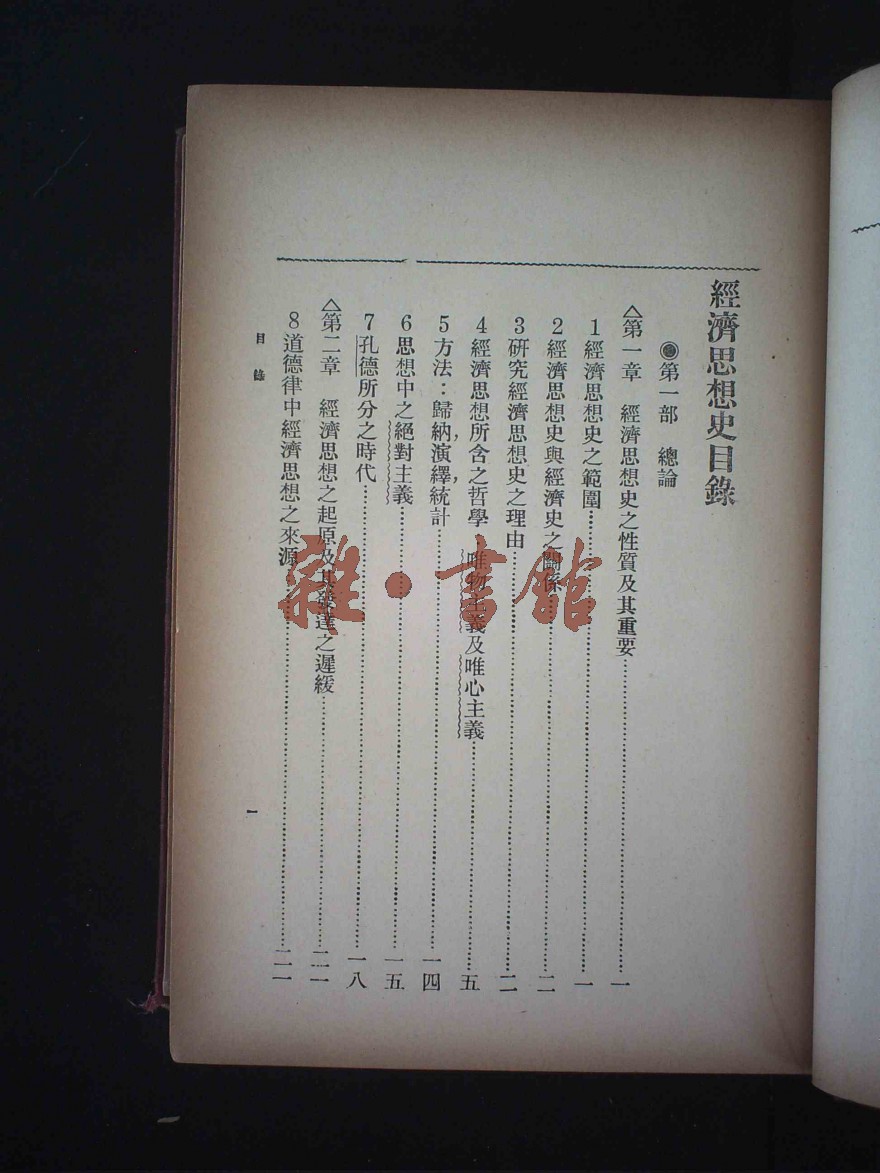 經濟思想史目錄
第一部　總論
△第一章　經濟思想史之性質及其重要……一
1 經濟思想史之範圍……一
2 經濟思想史與經濟史之關係……二
3 研究經濟思想史之理由……二
4 經濟思想所含之哲學，唯物主義及唯心主義……五
5 方法：歸納，演繹，統計……一四
6 思想中之絕對主義……一五
7 孔德所分之時代……一八
△第二章　經濟思想之起原及其發達之遲緩……二一
8 道德律中經濟思想之來源……二一
目錄
一
雜·書館